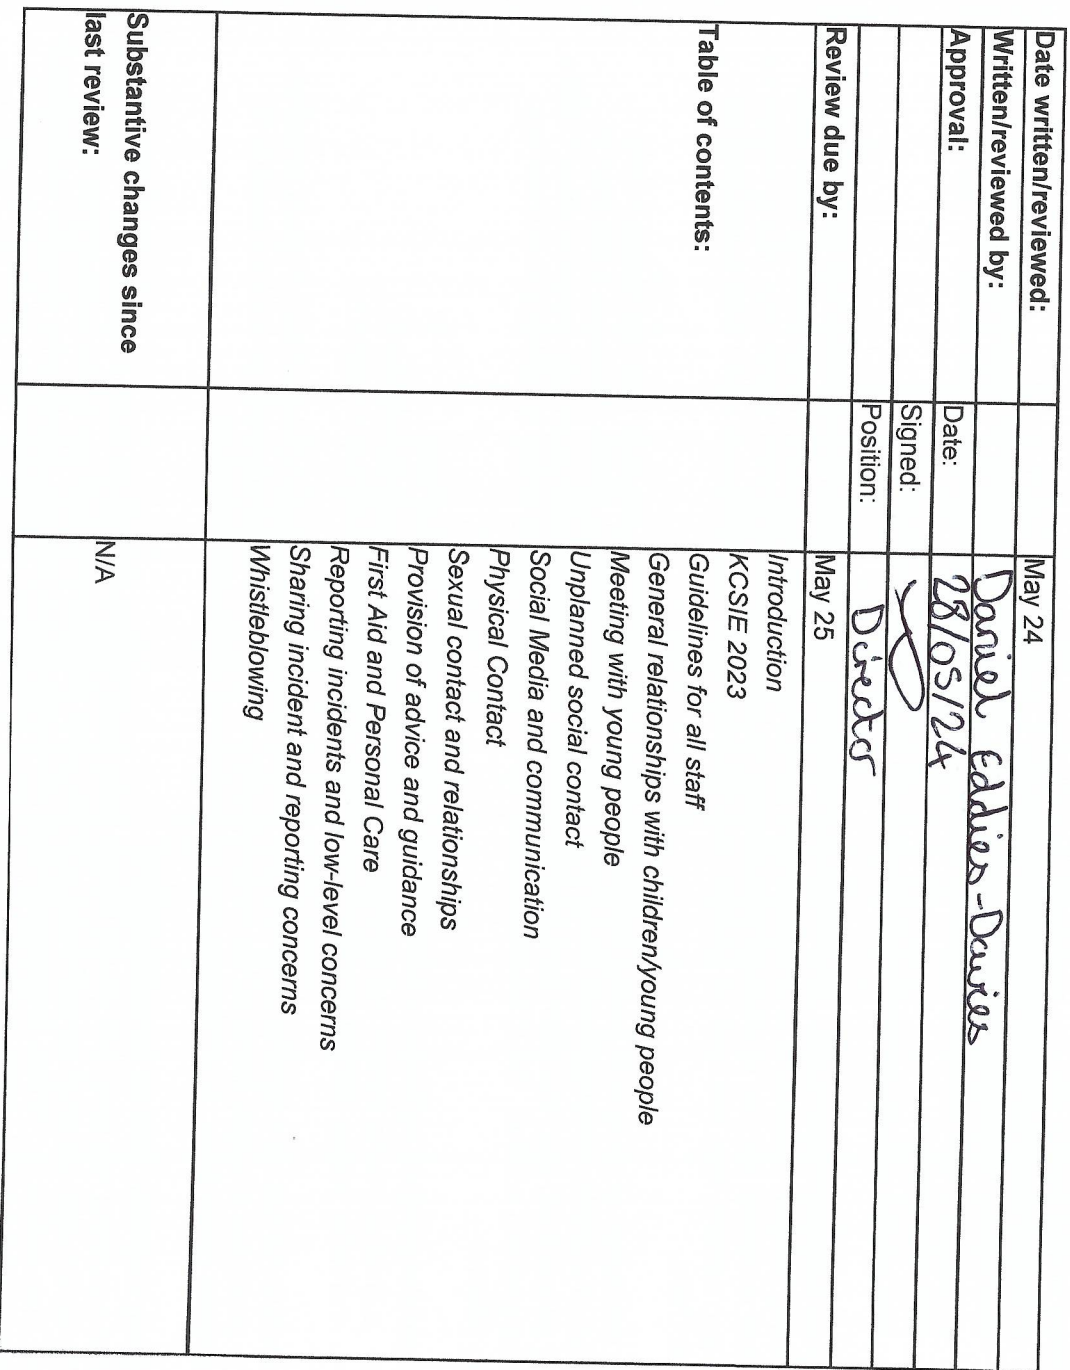 Date written/reviewed: May 24
Written/reviewed by: Daniel Eddies-Davies
Approval: Date: 28/05/24
Signed:
Position: Director
Review due by: May 25
Table of contents:
Introduction
KCSIE 2023
Guidelines for all staff
General relationships with children/young people
Meeting with young people
Unplanned social contact
Social Media and communication
Physical Contact
Sexual contact and relationships
Provision of advice and guidance
First Aid and Personal Care
Reporting incidents and low-level concerns
Sharing incident and reporting concerns
Whistleblowing
Substantive changes since
last review:
N/A